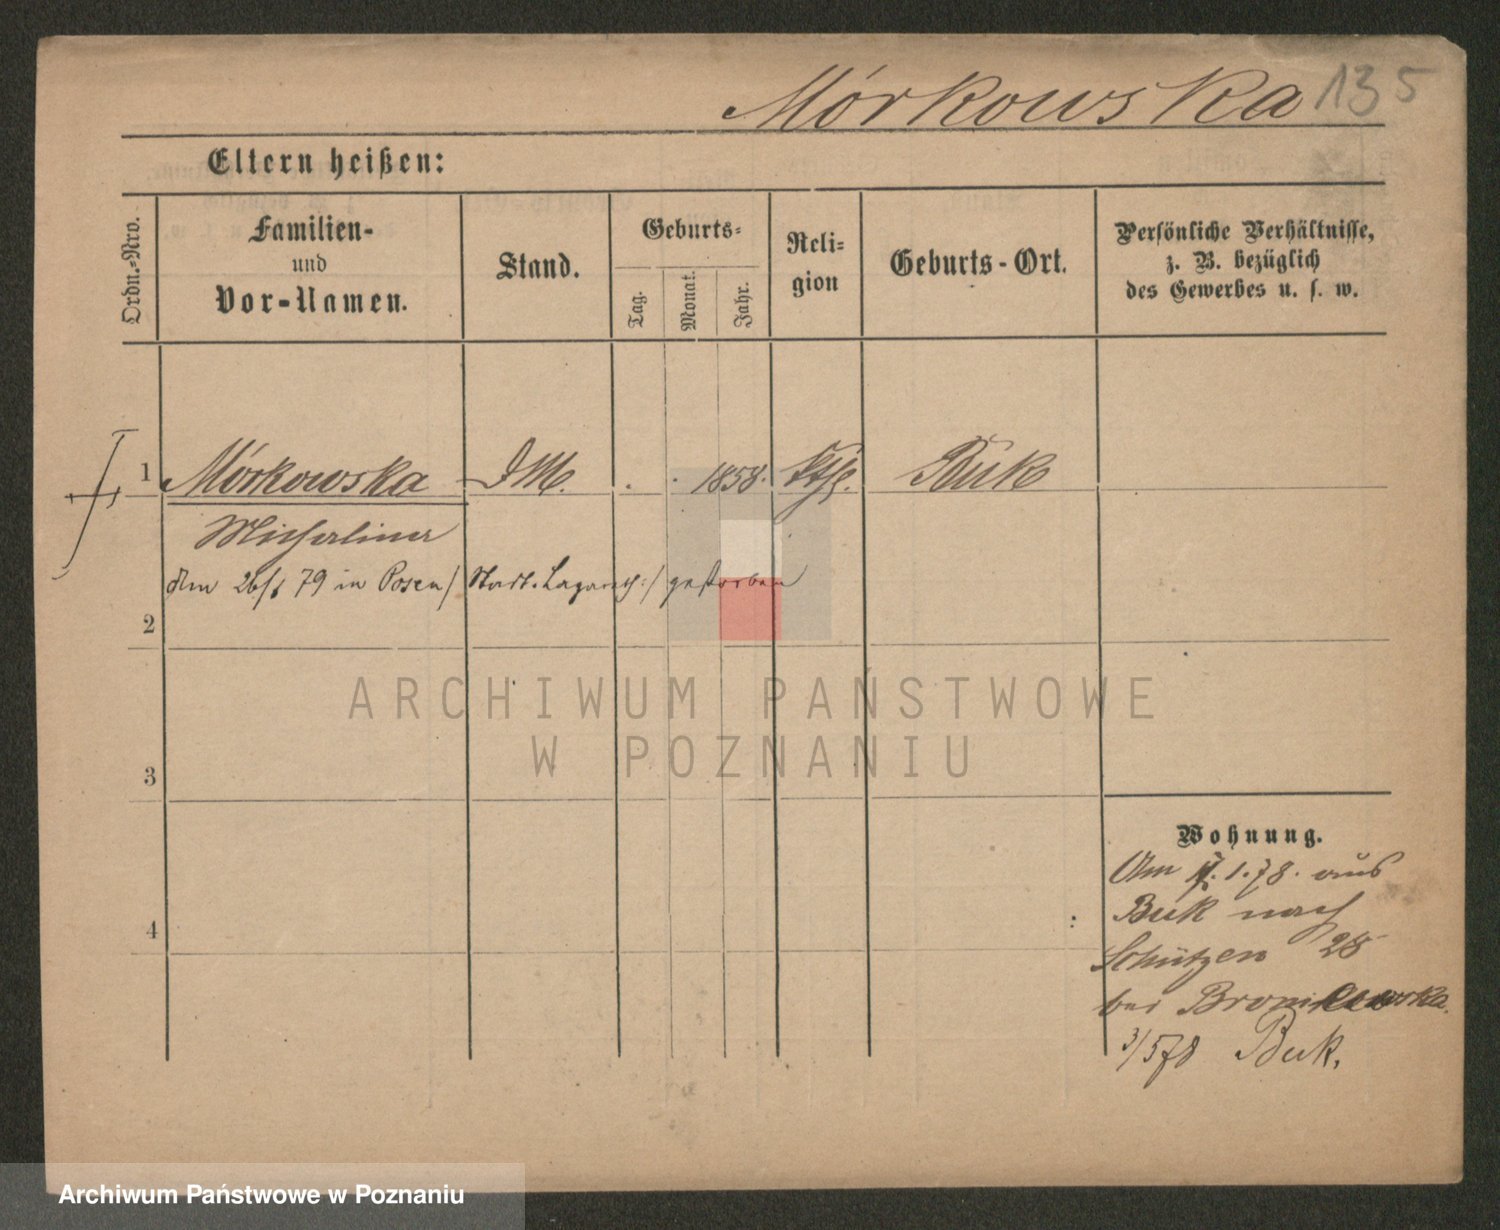 Mórkowska 135
Eltern heißen:
Ordn.-Nro.
Familien-
und
Vor-Namen.
Stand.
Geburts-
Tag.
Monat.
Jahr.
Reli-
gion
Geburts-Ort.
Persönliche Verhältnisse,
z. B. bezüglich
des Gewerbes u. s. w.
1 Mórkowska DM. . . 1858. Kth. Buk
Michalina
Am 26/1 79 in Posen /Stadt-Lazareth:/ gestorben
2
3
4
Wohnung.
Am 1. 78. aus
Buk nach
Schützen 28
bei
3/5 78 Buk.
ARCHIWUM PAŃSTWOWE
W POZNANIU
Archiwum Państwowe w Poznaniu